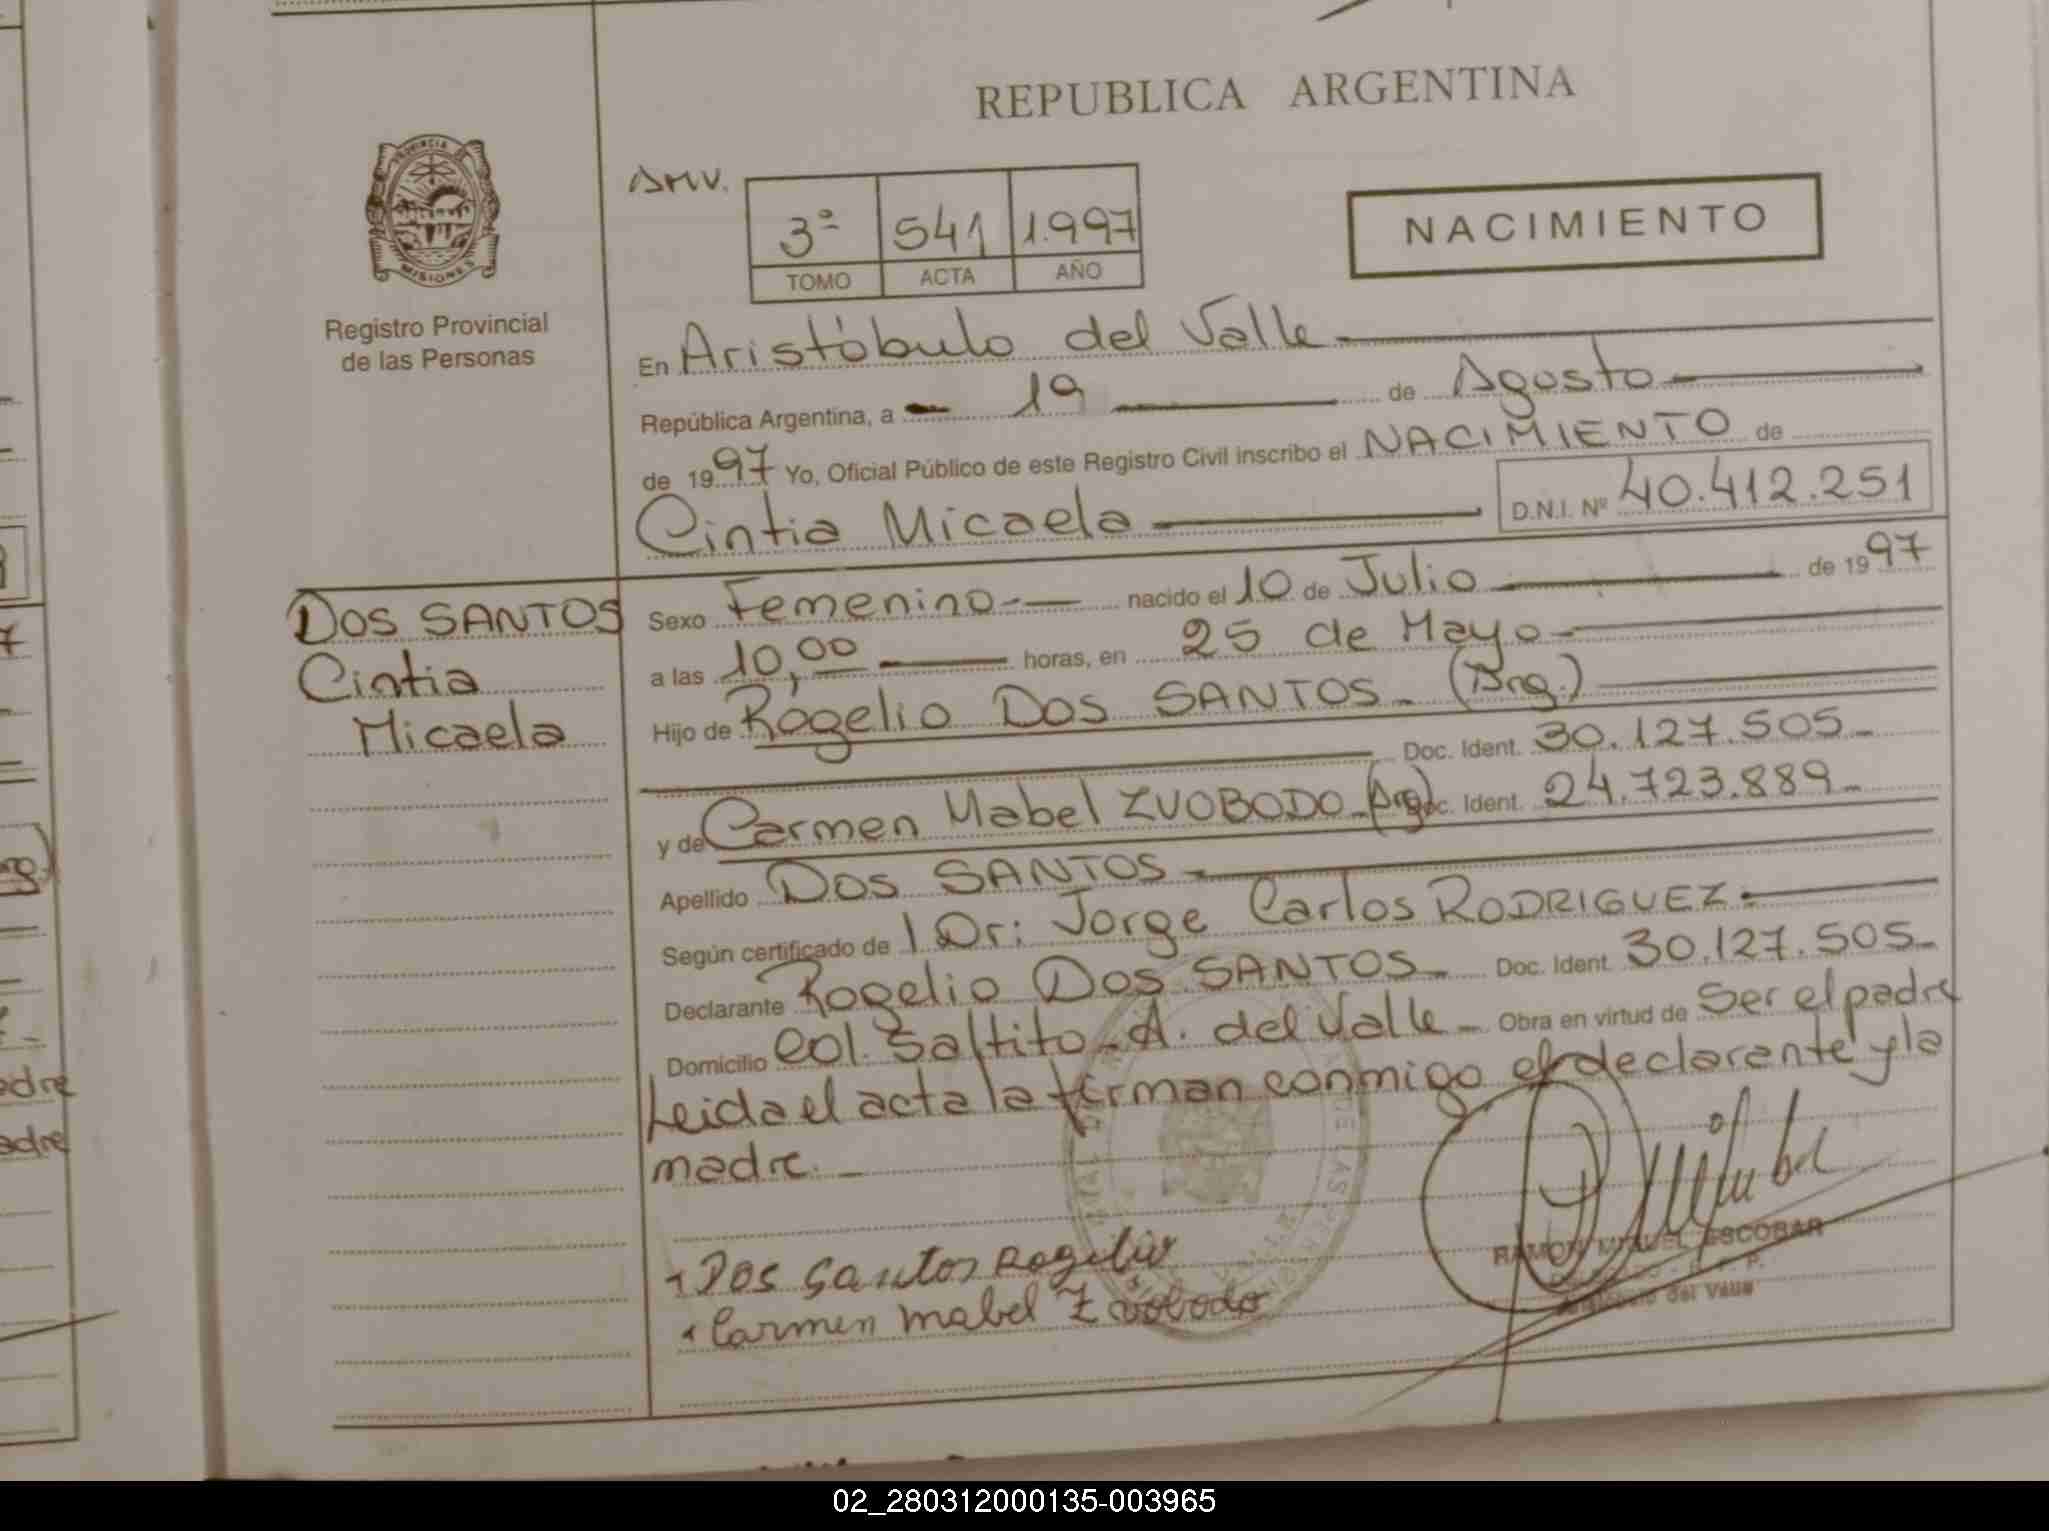 REPUBLICA ARGENTINA
PROVINCIA DE
MISIONES
Registro Provincial
de las Personas
AMV.
3º 541 1.997
TOMO ACTA AÑO
NACIMIENTO
En Aristóbulo del Valle
República Argentina, a 19 de Agosto
de 1997 Yo, Oficial Público de este Registro Civil inscribo el NACIMIENTO de
Cintia Micaela D.N.I. Nº 40.412.251
DOS SANTOS
Cintia
Micaela
Sexo Femenino nacido el 10 de Julio de 1997
a las 10,00 horas, en 25 de Mayo
Hijo de Rogelio DOS SANTOS (Arg.)
Doc. Ident. 30.127.505
y de Carmen Mabel ZVOBODO (Arg) Doc. Ident. 24.723.889
Apellido DOS SANTOS
Según certificado de Dr: Jorge Carlos RODRIGUEZ
Declarante Rogelio DOS SANTOS Doc. Ident. 30.127.505
Domicilio Col. Saltito - A. del Valle Obra en virtud de Ser el padre
Leida el acta la firman conmigo el declarante y la
madre.
Dos Santos Rogelio
Carmen Mabel Zvobodo
RAMON MIGUEL ESCOBAR
del Valle
adre
adre
02_280312000135-003965